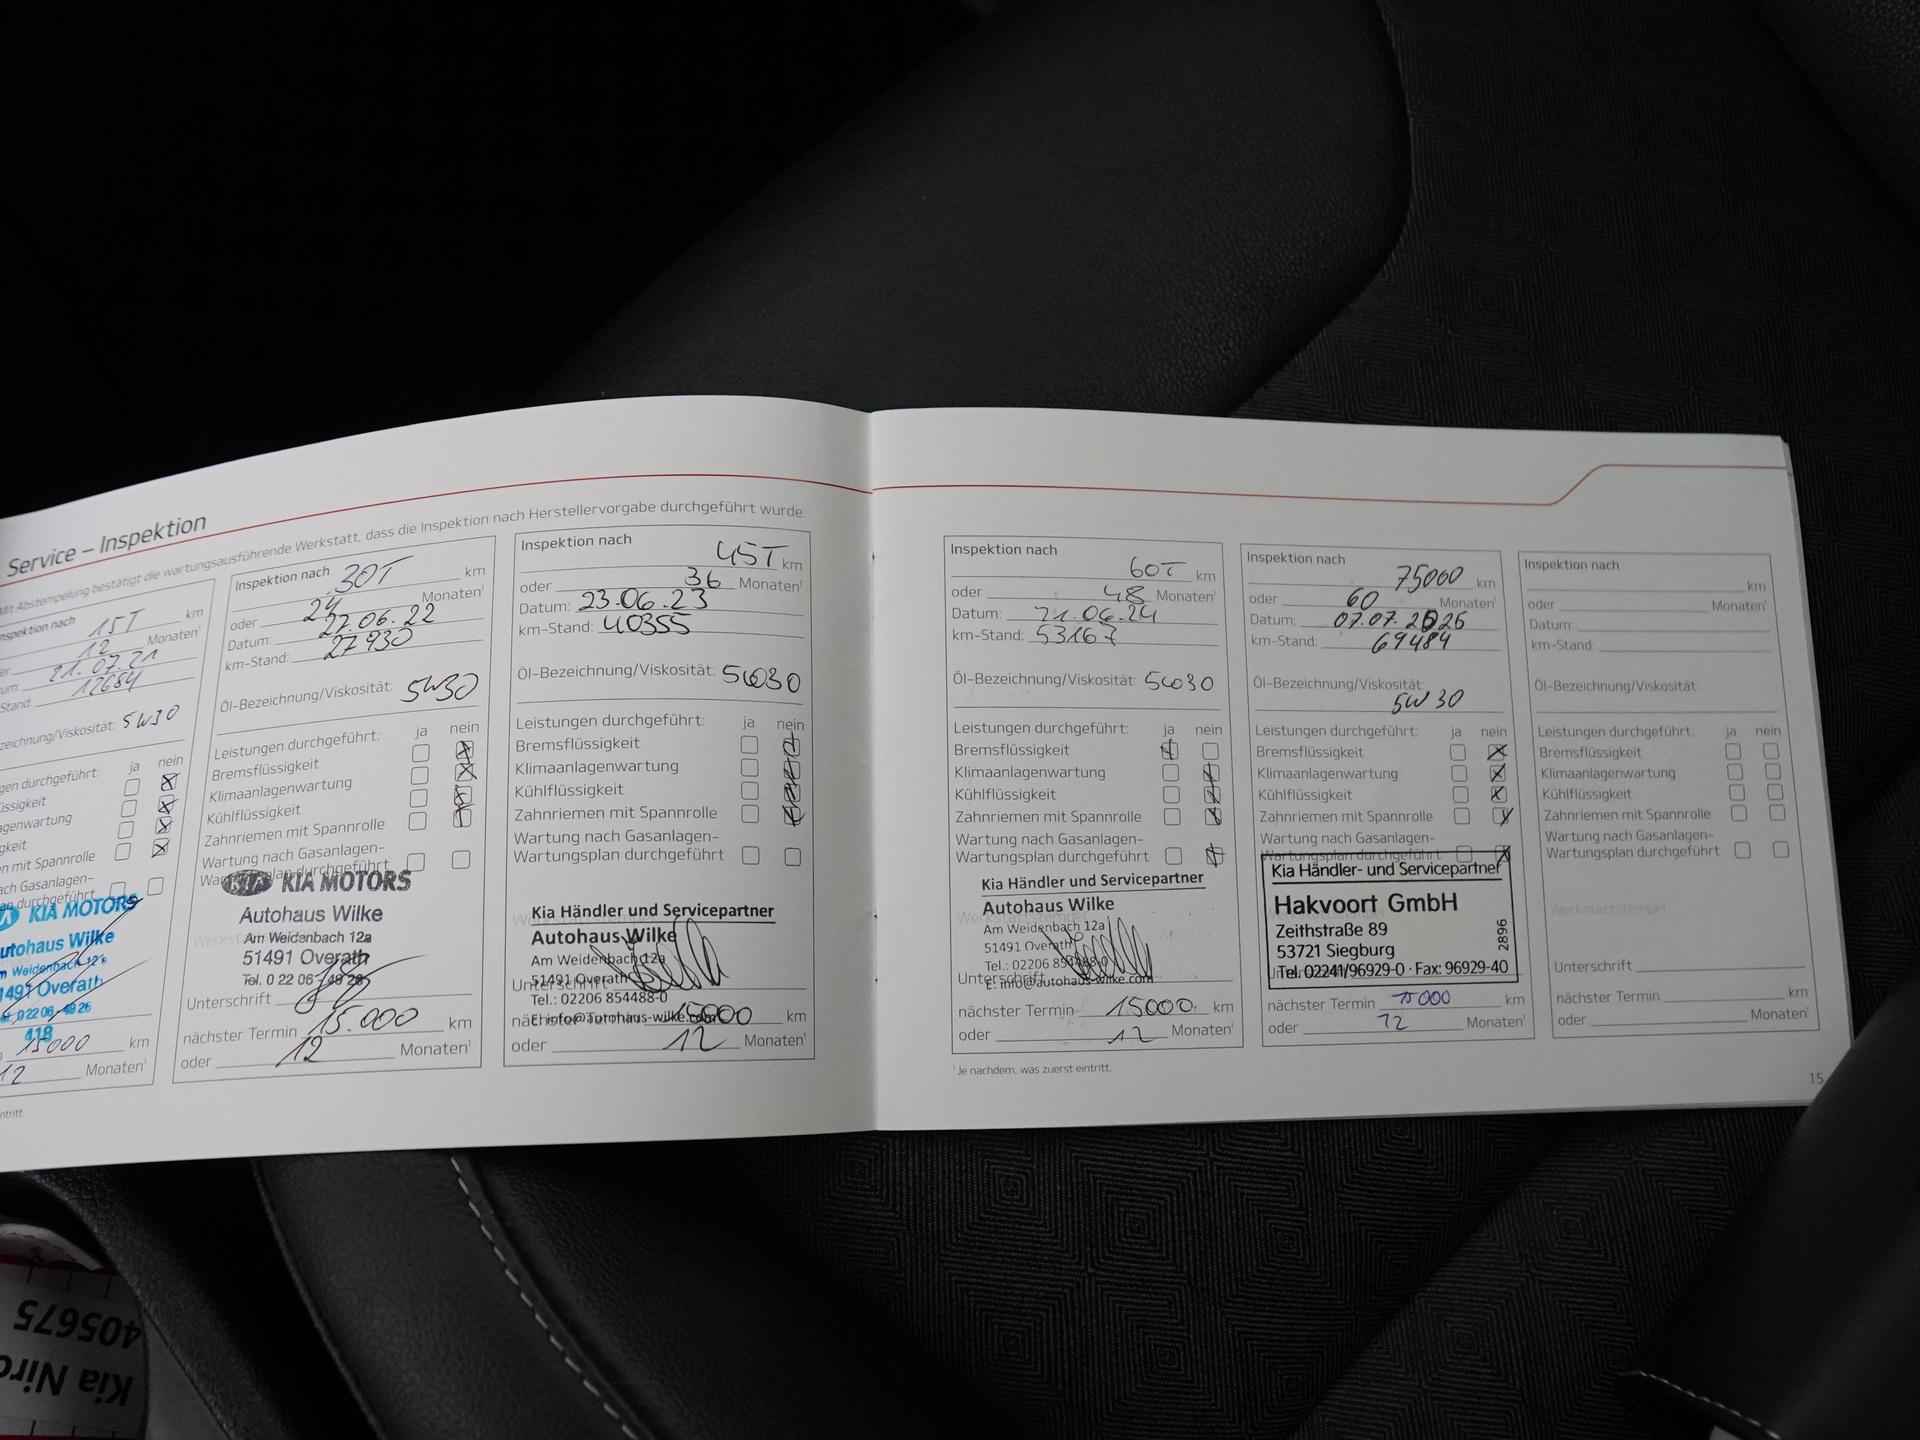 Service – Inspektion
Mit Abstempelung bestätigt die wartungsausführende Werkstatt, dass die Inspektion nach Herstellervorgabe durchgeführt wurde.
nspektion nach 15T km
12 Monaten¹
21.07.21
12684
5W30
ja nein
KIA MOTORS
Autohaus Wilke
Am Weidenbach 12a
51491 Overath
418
15000 km
12 Monaten¹
Inspektion nach 30T km
oder 24 Monaten¹
Datum: 27.06.22
km-Stand: 27930
Öl-Bezeichnung/Viskosität: 5W30
Leistungen durchgeführt: ja nein
Bremsflüssigkeit
Klimaanlagenwartung
Kühlflüssigkeit
Zahnriemen mit Spannrolle
Wartung nach Gasanlagen-
Wartungsplan durchgeführt
KIA KIA MOTORS
Autohaus Wilke
Am Weidenbach 12a
51491 Overath
Tel. 0 22 06 - 49 26
Unterschrift
nächster Termin 15.000 km
oder 12 Monaten¹
Inspektion nach 45T km
oder 36 Monaten¹
Datum: 23.06.23
km-Stand: 40355
Öl-Bezeichnung/Viskosität: 5W30
Leistungen durchgeführt: ja nein
Bremsflüssigkeit
Klimaanlagenwartung
Kühlflüssigkeit
Zahnriemen mit Spannrolle
Wartung nach Gasanlagen-
Wartungsplan durchgeführt
Kia Händler und Servicepartner
Autohaus Wilke
Am Weidenbach 12a
51491 Overath
Unterschrift
Tel.: 02206 854488-0
E: info@autohaus-wilke.com
nächster Termin 15000 km
oder 12 Monaten¹
Inspektion nach 60T km
oder 48 Monaten¹
Datum: 21.06.24
km-Stand: 53167
Öl-Bezeichnung/Viskosität: 5W30
Leistungen durchgeführt: ja nein
Bremsflüssigkeit
Klimaanlagenwartung
Kühlflüssigkeit
Zahnriemen mit Spannrolle
Wartung nach Gasanlagen-
Wartungsplan durchgeführt
Kia Händler und Servicepartner
Autohaus Wilke
Am Weidenbach 12a
51491 Overath
Tel.: 02206 854488-0
Unterschrift
E: info@autohaus-wilke.com
nächster Termin 15000 km
oder 12 Monaten¹
¹Je nachdem, was zuerst eintritt.
Inspektion nach 75000 km
oder 60 Monaten¹
Datum: 07.07.2026
km-Stand: 69484
Öl-Bezeichnung/Viskosität:
5W30
Leistungen durchgeführt: ja nein
Bremsflüssigkeit
Klimaanlagenwartung
Kühlflüssigkeit
Zahnriemen mit Spannrolle
Wartung nach Gasanlagen-
Wartungsplan durchgeführt
Kia Händler- und Servicepartner
Hakvoort GmbH
Zeithstraße 89
53721 Siegburg
Tel. 02241/96929-0 · Fax: 96929-40
2896
nächster Termin 15000 km
oder 12 Monaten¹
Inspektion nach
km
oder Monaten¹
Datum:
km-Stand:
Öl-Bezeichnung/Viskosität:
Leistungen durchgeführt: ja nein
Bremsflüssigkeit
Klimaanlagenwartung
Kühlflüssigkeit
Zahnriemen mit Spannrolle
Wartung nach Gasanlagen-
Wartungsplan durchgeführt
Werkstattstempel
Unterschrift
nächster Termin km
oder Monaten¹
15
405675
Kia Niro